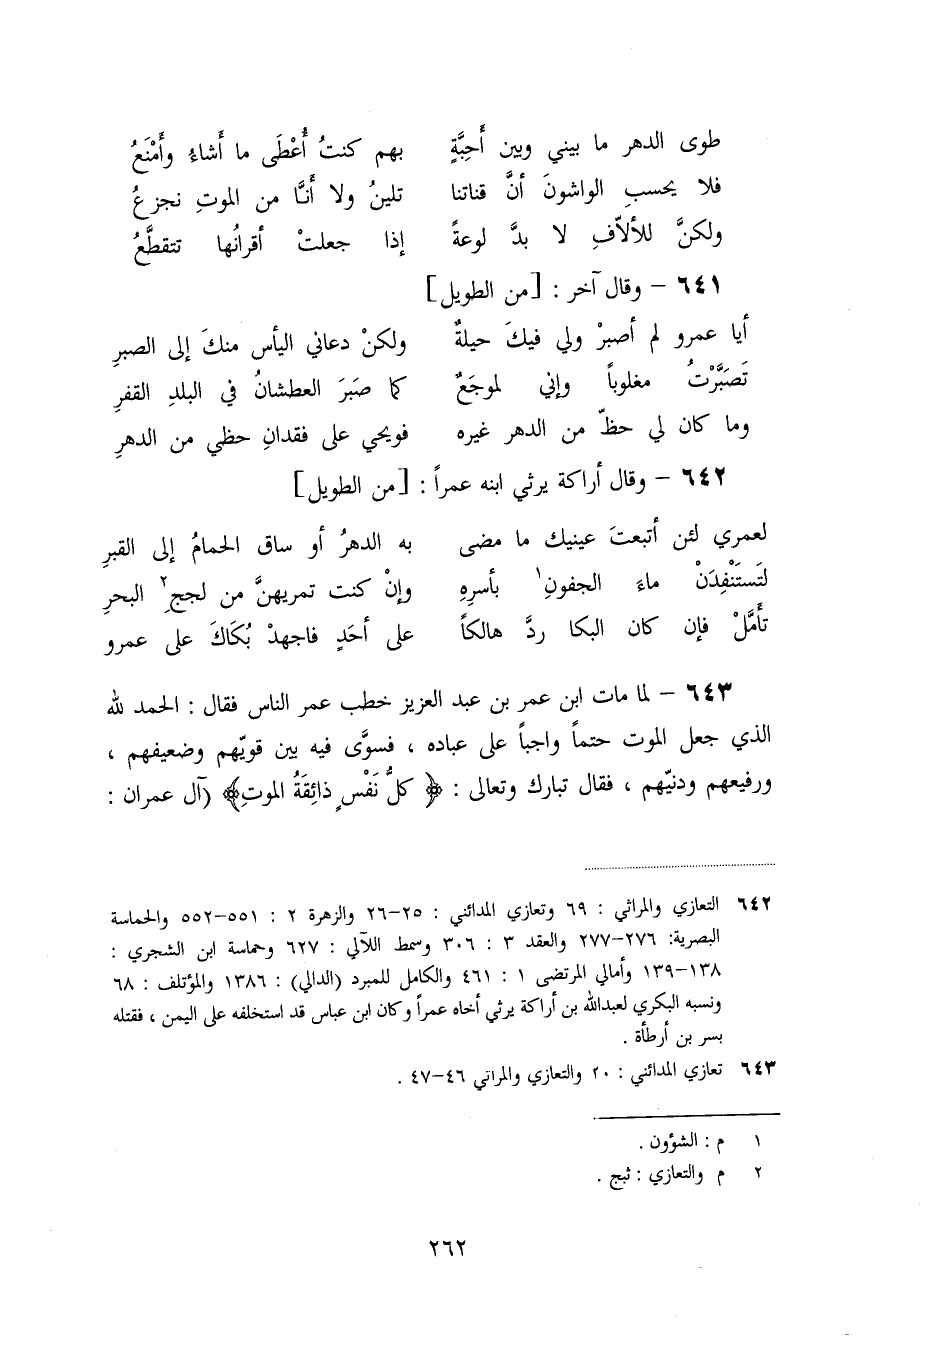 طوى الدهر ما بيني وبين أَحِبَّةٍ بهم كنتُ أُعْطَى ما أَشاءُ وأَمْنَعُ
فلا يحسبِ الواشونَ أنَّ قناتنا تلينُ ولا أَنَّا من الموتِ نجزعُ
ولكنَّ للأُلاّفِ لا بدَّ لوعةً إذا جعلتْ أقرانُها تتقطَّعُ
٦٤١ – وقال آخر : [من الطويل]
أيا عمرو لم أصبرْ ولي فيكَ حيلةٌ ولكنْ دعاني اليأس منكَ إلى الصبرِ
تَصَبَّرْتُ مغلوباً وإني لموجَعٌ كما صَبَرَ العطشانُ في البلدِ القفرِ
وما كان لي حظّ من الدهر غيره فويحي على فقدانِ حظي من الدهرِ
٦٤٢ – وقال أراكة يرثي ابنه عمراً : [من الطويل]
لعمري لئن أتبعتَ عينيك ما مضى به الدهرُ أو ساق الحمامُ إلى القبرِ
لتَستَنْفِدَنْ ماءَ الجفونِ١ بأسرِهِ وإنْ كنت تمريهنَّ من لججِ٢ البحرِ
تأَمَّلْ فإن كان البكا ردَّ هالكاً على أحَدٍ فاجهدْ بُكَاكَ على عمرو
٦٤٣ – لما مات ابن عمر بن عبد العزيز خطب عمر الناس فقال : الحمد لله
الذي جعل الموت حتماً واجباً على عباده ، فسوَّى فيه بين قويّهم وضعيفهم ،
ورفيعهم ودنيّهم ، فقال تبارك وتعالى : ﴿ كلُّ نَفْسٍ ذائِقَةُ الموتِ﴾ (آل عمران :
٦٤٢ التعازي والمراثي : ٦٩ وتعازي المدائني : ٢٥–٢٦ والزهرة ٢ : ٥٥١–٥٥٢ والحماسة
البصرية: ٢٧٦–٢٧٧ والعقد ٣ : ٣٠٦ وسمط اللآلي : ٦٢٧ وحماسة ابن الشجري :
١٣٨–١٣٩ وأمالي المرتضى ١ : ٤٦١ والكامل للمبرد (الدالي) : ١٣٨٦ والمؤتلف : ٦٨
ونسبه البكري لعبدالله بن أراكة يرثي أخاه عمراً وكان ابن عباس قد استخلفه على اليمن ، فقتله
بسر بن أرطأة .
٦٤٣ تعازي المدائني : ٢٠ والتعازي والمراثي ٤٦–٤٧ .
١ م : الشؤون .
٢ م والتعازي : ثبج .
٢٦٢